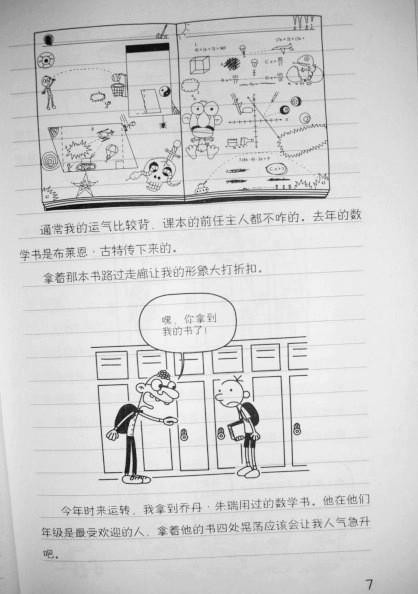 通常我的运气比较背，课本的前任主人都不咋的。去年的数
学书是布莱恩·古特传下来的。
拿着那本书路过走廊让我的形象大打折扣。
嘿，你拿到
我的书了！
今年时来运转，我拿到乔丹·朱瑞用过的数学书。他在他们
年级是最受欢迎的人，拿着他的书四处晃荡应该会让我人气急升
吧。
7